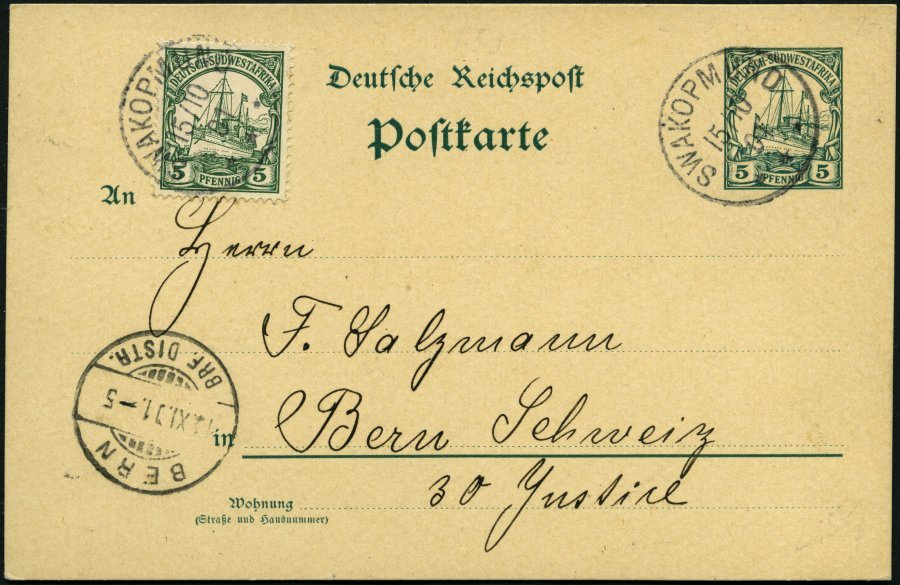 DEUTSCH-SÜDWESTAFRIKA
5 PFENNIG 5
SWAKOPMUND
15/10
Deutsche Reichspost
Postkarte
DEUTSCH-SÜDWESTAFRIKA
5 PFENNIG 5
SWAKOPMUND
15/10
01
An
Herrn
F. Salzmann
BRF. DISTR.
XI.01.-5
BERN
in Bern Schweiz
30 Justice
Wohnung
(Straße und Hausnummer)